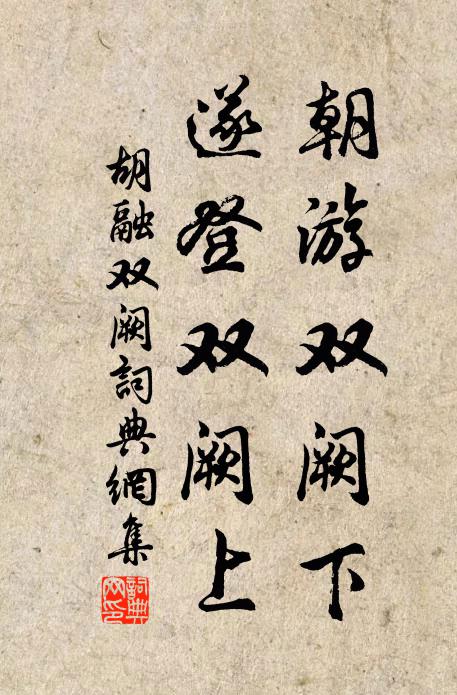 朝游双阙下
遂登双阙上
胡融双阙詞典網集
詞典
网印